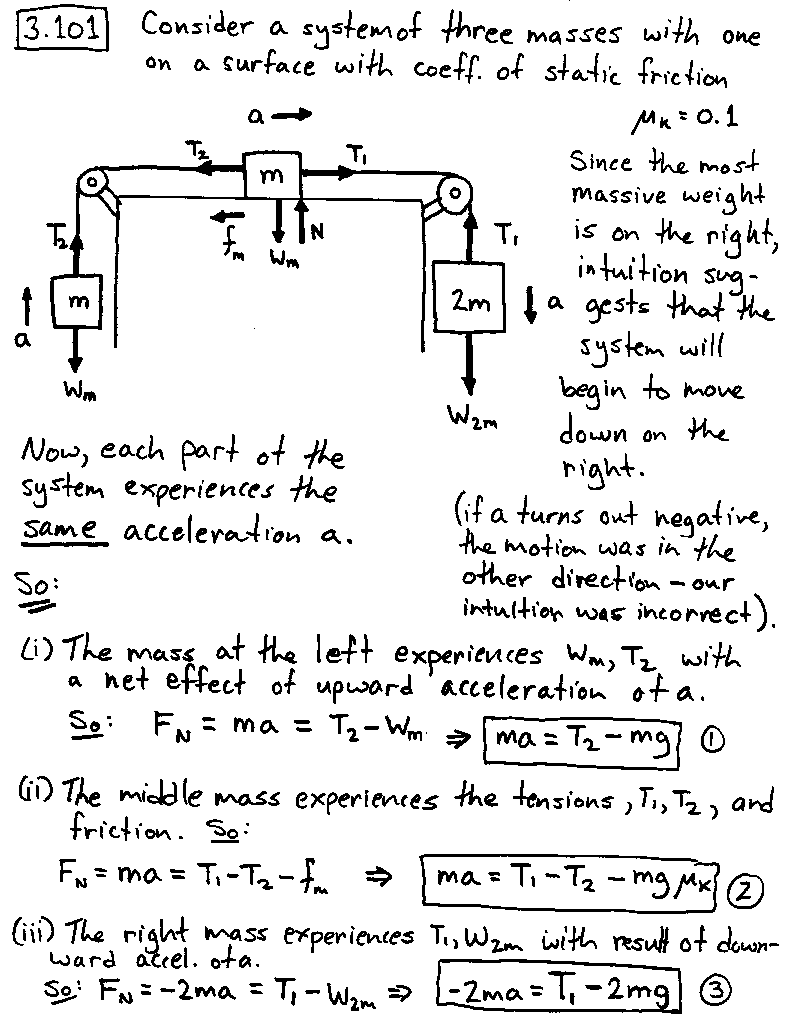 3.101 Consider a system of three masses with one
on a surface with coeff. of static friction
μk = 0.1
a →
T2
m
T1
Since the most
massive weight
is on the right,
intuition sug-
gests that the
system will
begin to move
down on the
right.
fm
Wm
N
T2
T1
m
2m
a
a
Wm
W2m
Now, each part of the
system experiences the
same acceleration a.
(if a turns out negative,
the motion was in the
other direction – our
intuition was incorrect).
So:
(i) The mass at the left experiences Wm, T2 with
a net effect of upward acceleration of a.
So: FN = ma = T2 - Wm ⇒ ma = T2 - mg ①
(ii) The middle mass experiences the tensions, T1, T2, and
friction. So:
FN = ma = T1 - T2 - fm ⇒ ma = T1 - T2 - mg μk ②
(iii) The right mass experiences T1, W2m with result of down-
ward accel. of a.
So: FN = -2ma = T1 - W2m ⇒ -2ma = T1 - 2mg ③